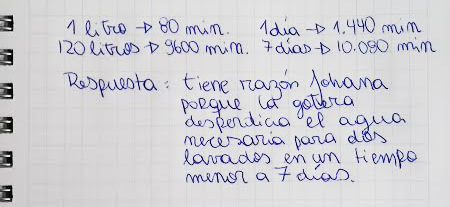 1 litro → 80 min. 1 día → 1.440 min
120 litros → 9600 min. 7 días → 10.080 min
Respuesta: tiene razón Johana
porque la gotera
desperdicia el agua
necesaria para dos
lavados en un tiempo
menor a 7 días.